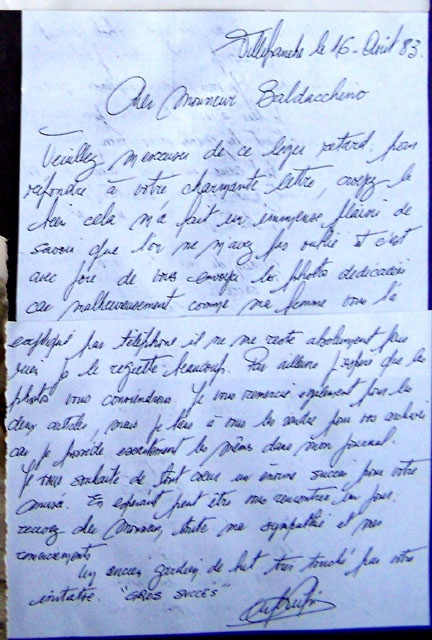 Villefranche le 16 - Avril 83.
Cher Monsieur Baldacchino
Veuillez m'excuser de ce léger retard pour
répondre à votre charmante lettre, croyez le
bien cela m'a fait un immense plaisir de
savoir que l'on ne m'avez pas oublié et c'est
avec joie de vous envoyer les photos dédicacées
car malheureusement comme ma femme vous l'a
expliqué par téléphone il ne me reste absolument plus
rien je le regrette beaucoup. Par ailleurs j'espère que les
photos vous conviendrons. Je vous remercie également pour les
deux articles, mais je tiens à vous les rendre pour vos archives
car je possède exactement les mêmes dans mon journal.
Je vous souhaite de tout cœur un énorme succès pour votre
musée. En espérant peut être vous rencontrer un jour.
recevez cher Monsieur, toute ma sympathie et mes
remerciements
Un ancien gardien de but très touché par votre
initiative. "GROS SUCCÈS"